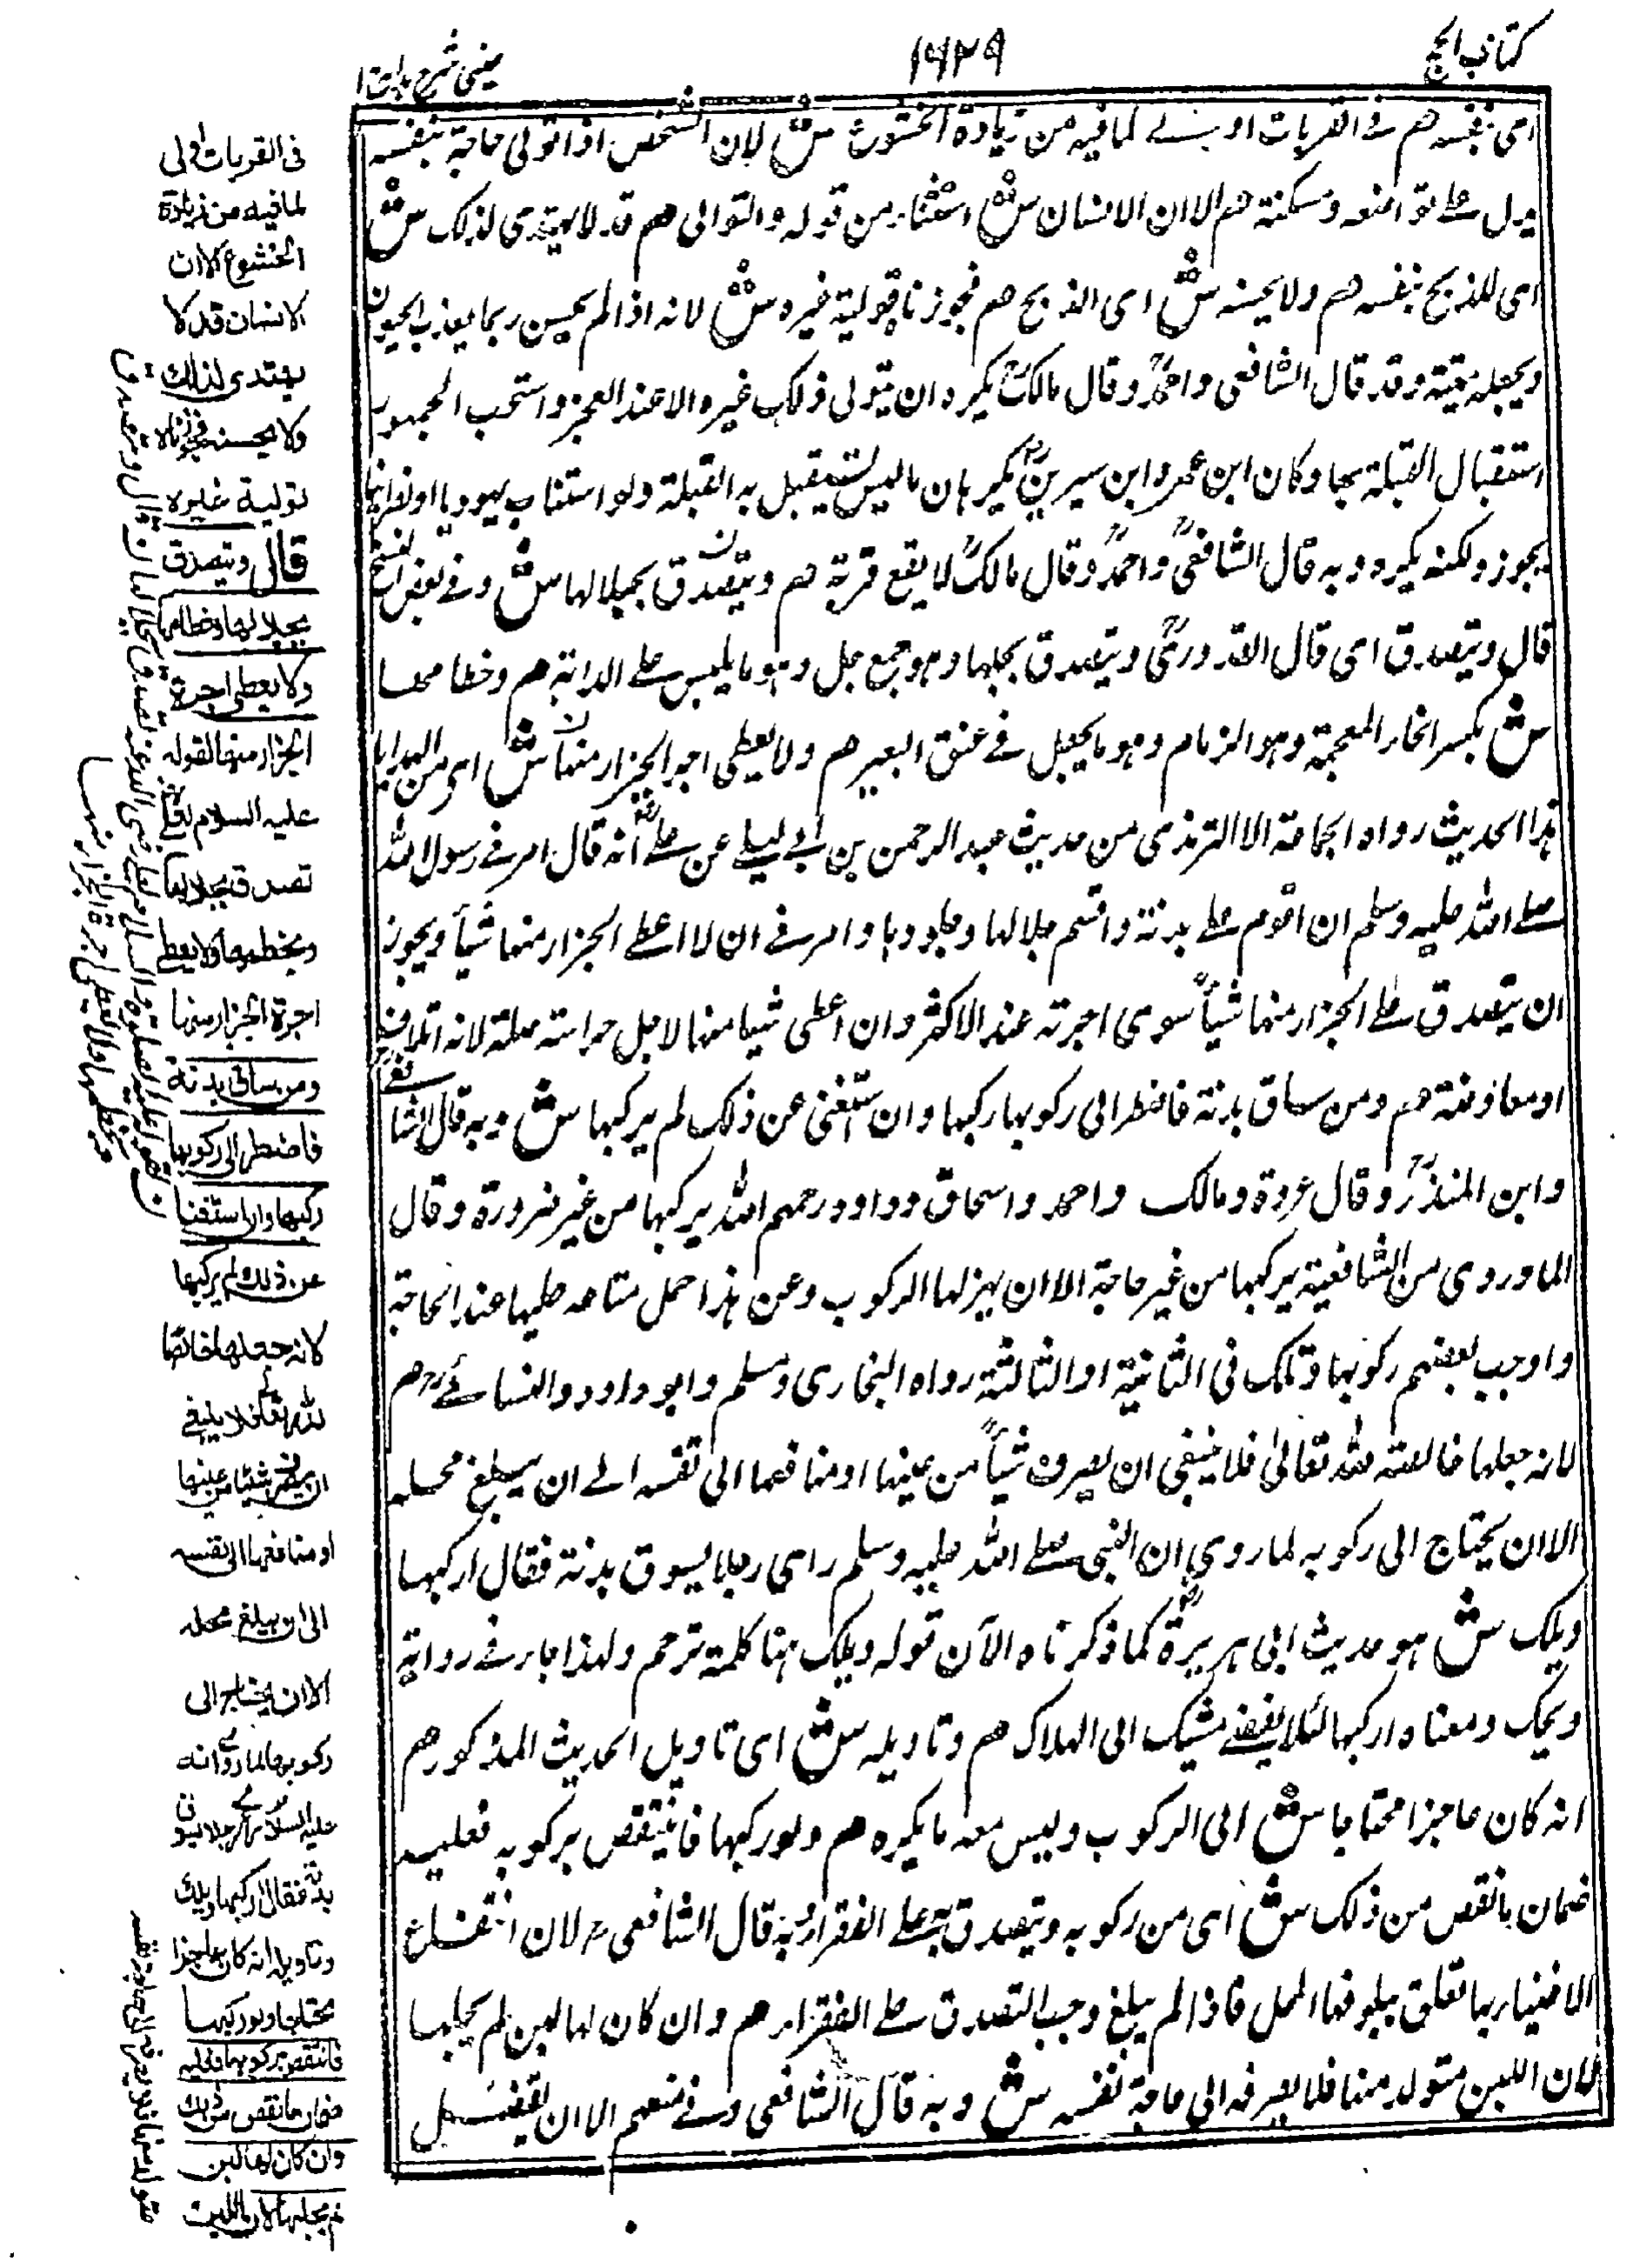 كتاب الحج
١٦٢٩
عينى شرح هداية
اى بنفسه هم فى القربات اولى لما فيه من زيادة الخشوع ش لان الشخص اذا تولى حاجة بنفسه
يدل على تواضعه ومسكنته هم الا ان الانسان ش استثناء من قوله والتولى هم قد لا يهتدى لذلك ش
اى للذبح بنفسه هم ولا يحسنه ش اى الذبح هم فجوزنا توليته غيره ش لانه اذا لم يحسن ربما يعذب الحيوان
ويجعله ميتة وقد قال الشافعى واحمد وقال مالك يكره ان يتولى ذلك غيره الا عند العجز واستحب الجمهور
استقبال القبلة بها وكان ابن عمر وابن سيرين يكرهان ما ليس يستقبل به القبلة ولو استناب يهوديا او نصرانيا
يجوز ولكنه يكره وبه قال الشافعى واحمد وقال مالك لا يقع قربة هم ويتصدق بجلالها ش وفى بعض النسخ
قال ويتصدق اى قال القدورى ويتصدق بجلها وهو جمع جل وهو ما يلبس على الدابة هم وخطامها
ش بكسر الخاء المعجمة وهو الزمام وهو ما يجعل فى عنق البعير هم ولا يعطى اجر الجزار منها ش اى من الهدايا
هذا الحديث رواه الجماعة الا الترمذى من حديث عبد الرحمن بن ابى ليلى عن على انه قال امرنى رسول الله
صلى الله عليه وسلم ان اقوم على بدنة واقسم جلالها وجلودها وامرنى ان لا اعطى الجزار منها شيأ ويجوز
ان يتصدق على الجزار منها شيأ سوى اجرته عند الاكثر وان اعطى شيئا منها لاجل جزارته ضمنه لانه اتلاف
او معاوضة هم ومن ساق بدنة فاضطر الى ركوبها ركبها وان استغنى عن ذلك لم يركبها ش وبه قال الشافعى
وابن المنذر وقال عروة ومالك واحمد واسحاق وداود رحمهم الله يركبها من غير ضرورة وقال
الماوردى من الشافعية يركبها من غير حاجة الا ان يهزلها الركوب وعن هذا حمل متاعه عليها عند الحاجة
واوجب بعضهم ركوبها وتلك فى الثانية او الثالثة رواه البخارى ومسلم وابو داود والنسائى هم
لانه جعلها خالصة لله تعالى فلا ينبغى ان يصرف شيأ من عينها او منافعها الى نفسه الى ان يبلغ محله
الا ان يحتاج الى ركوبه لما روى ان النبى صلى الله عليه وسلم راى رجلا يسوق بدنة فقال اركبها
ويلك ش هو حديث ابى هريرة كما ذكرناه الآن قوله ويلك هنا كلمة ترحم ولهذا جاء فى رواية
ويحك ومعناه اركبها لئلا يفضى مشيك الى الهلاك هم وتاويله ش اى تاويل الحديث المذكور هم
انه كان عاجزا محتاجا ش الى الركوب وليس معه ما يكره هم ولو ركبها فانتقص بركوبه فعليه
ضمان ما نقص من ذلك ش اى من ركوبه ويتصدق به على الفقراء وبه قال الشافعى لان انتفاع
الاغنياء بها تعلق ببلوغها المحل فاذا لم يبلغ وجب التصدق على الفقراء هم وان كان لها لبن لم يحلبها
لان اللبن متولد منها فلا يصرفه الى حاجة نفسه ش وبه قال الشافعى وفى منعهم الا ان يفضل
فى القربات اولى
لما فيه من زيادة
الخشوع الا ان
الانسان قد لا
يهتدى لذلك
ولا يحسنه فجوزنا
توليته غيره
قال ويتصدق
بجلالها وخطامها
ولا يعطى اجرة
الجزار منها لقوله
عليه السلام لعلى
تصدق بجلالها
وبخطمها ولا يعطى
اجرة الجزار منها
ومن ساق بدنة
فاضطر الى ركوبها
ركبها وان استغنى
عن ذلك لم يركبها
لانه جعلها خالصا
لله تعالى فلا ينبغى
ان يصرف شيئا من عينها
او منافعها الى نفسه
الى ان يبلغ محله
الا ان يحتاج الى
ركوبها لما روى انه
عليه السلام راى رجلا يسوق
بدنة فقال اركبها ويلك
وتاويله انه كان عاجزا
محتاجا ولو ركبها
فانتقص بركوبها فعليه
ضمان ما نقص من ذلك
وان كان لها لبن
لم يحلبها لان اللبن
متولد منها فلا يصرفه الى حاجة نفسه